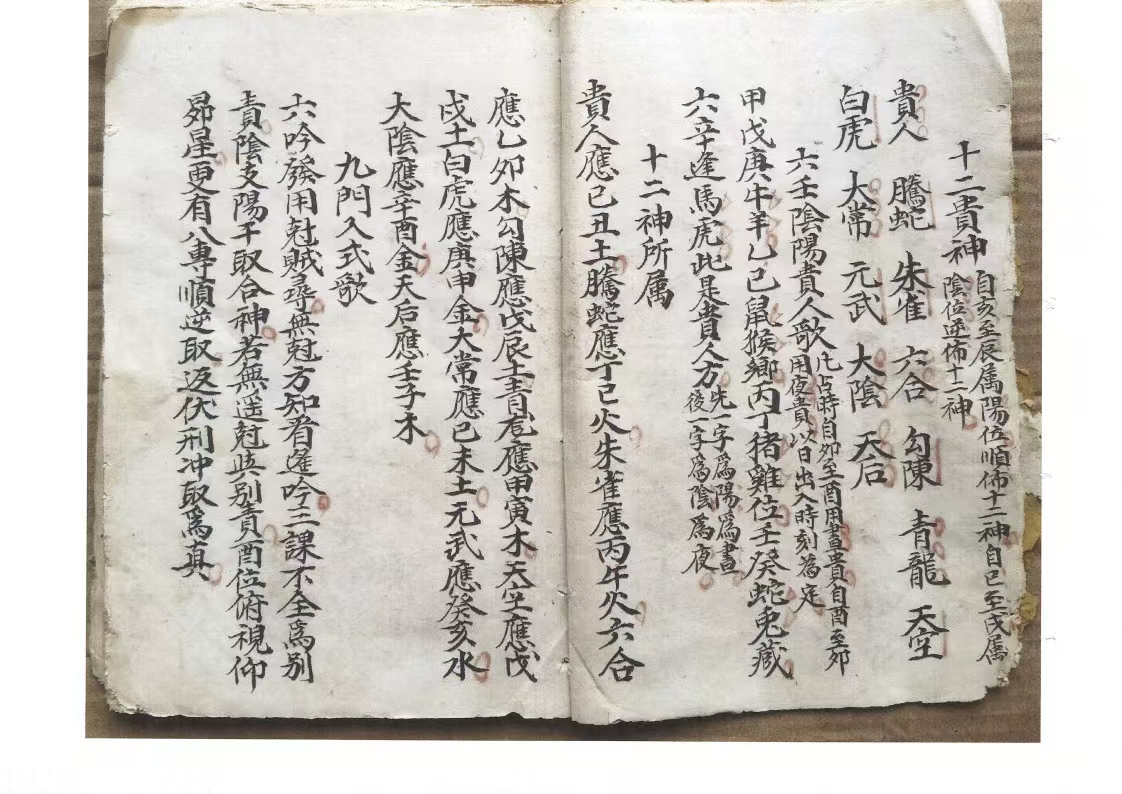 十二貴神 自亥至辰属陽位順佈十二神自巳至戌属陰位逆佈十二神
貴人 騰蛇 朱雀 六合 勾陳 青龍 天空
白虎 大常 元武 大陰 天后
六壬陰陽貴人歌 凡占時自卯至酉用晝貴自酉至卯用夜貴以日出入時刻為定
甲戊庚牛羊乙己鼠猴鄉丙丁猪雞位壬癸蛇兎藏
六辛逢馬虎此是貴人方 先一字爲陽爲晝後一字爲陰爲夜
十二神所属
貴人應己丑土騰蛇應丁巳火朱雀應丙午火六合
應乙夘木勾陳應戊辰土青龙應甲寅木天空應戊
戌土白虎應庚申金大常應己未土元武應癸亥水
大陰應辛酉金天后應壬子木
九門入式歌
六吟發用尅賊尋無尅方知看遙吟三課不全爲別
責陰支陽干取合神若無遥尅與别責酉位俯視仰
昴星更有八專順逆取返伏刑冲取爲真